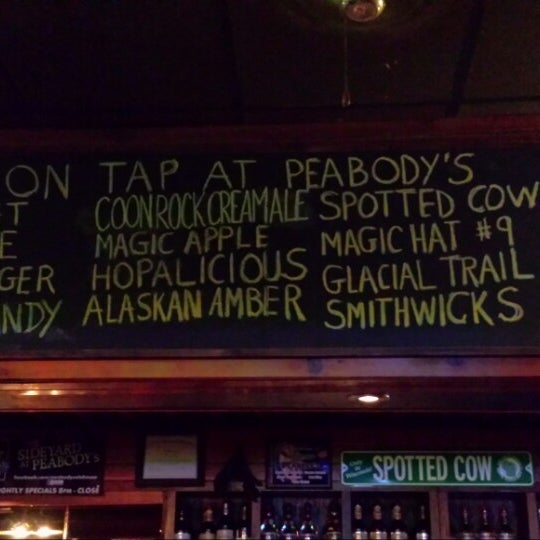 ON TAP AT PEABODY'S
COONROCK CREAMALE SPOTTED COW
MAGIC APPLE MAGIC HAT #9
GER HOPALICIOUS GLACIAL TRAIL
NDY ALASKAN AMBER SMITHWICKS
SIDEYARD
AT PEABODY'S
NIGHTLY SPECIALS 8PM - CLOSE
SPOTTED COW